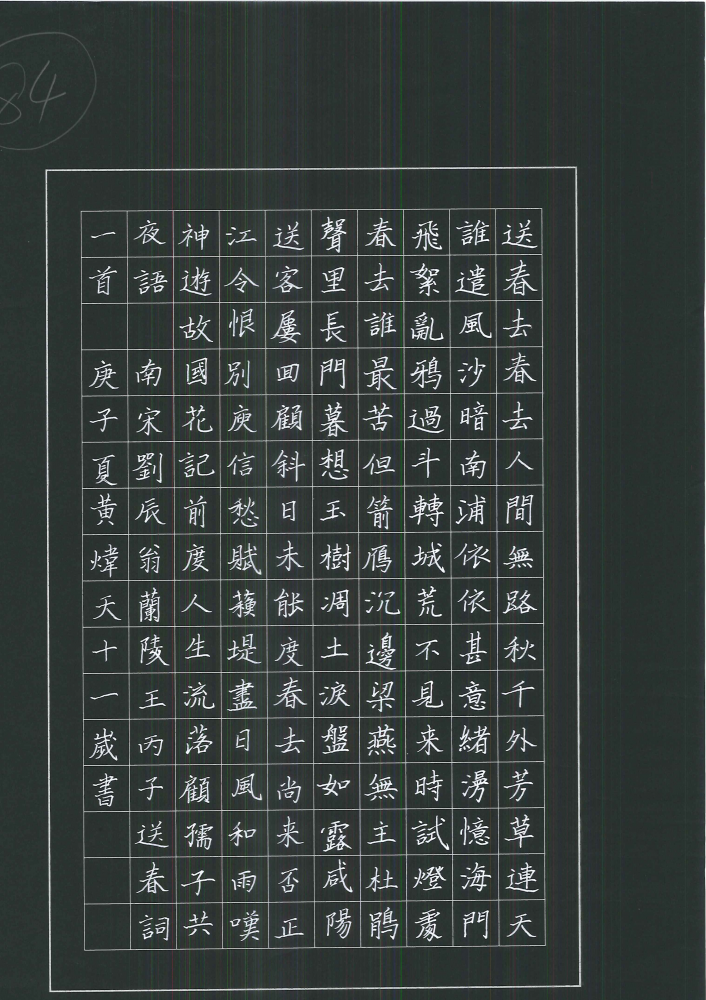 84
送春去春去人間無路秋千外芳草連天
誰遣風沙暗南浦依依甚意緒漫憶海門
飛絮亂鴉過斗轉城荒不見来時試燈處
春去誰最苦但箭鴈沉邊梁燕無主杜鵑
聲里長門暮想玉樹凋土淚盤如露咸陽
送客屢回顧斜日未能度春去尚来否正
江令恨別庾信愁賦蘓堤盡日風和雨嘆
神遊故國花記前度人生流落顧孺子共
夜語 南宋劉辰翁蘭陵王丙子送春詞
一首 庚子夏黄煒天十一嵗書